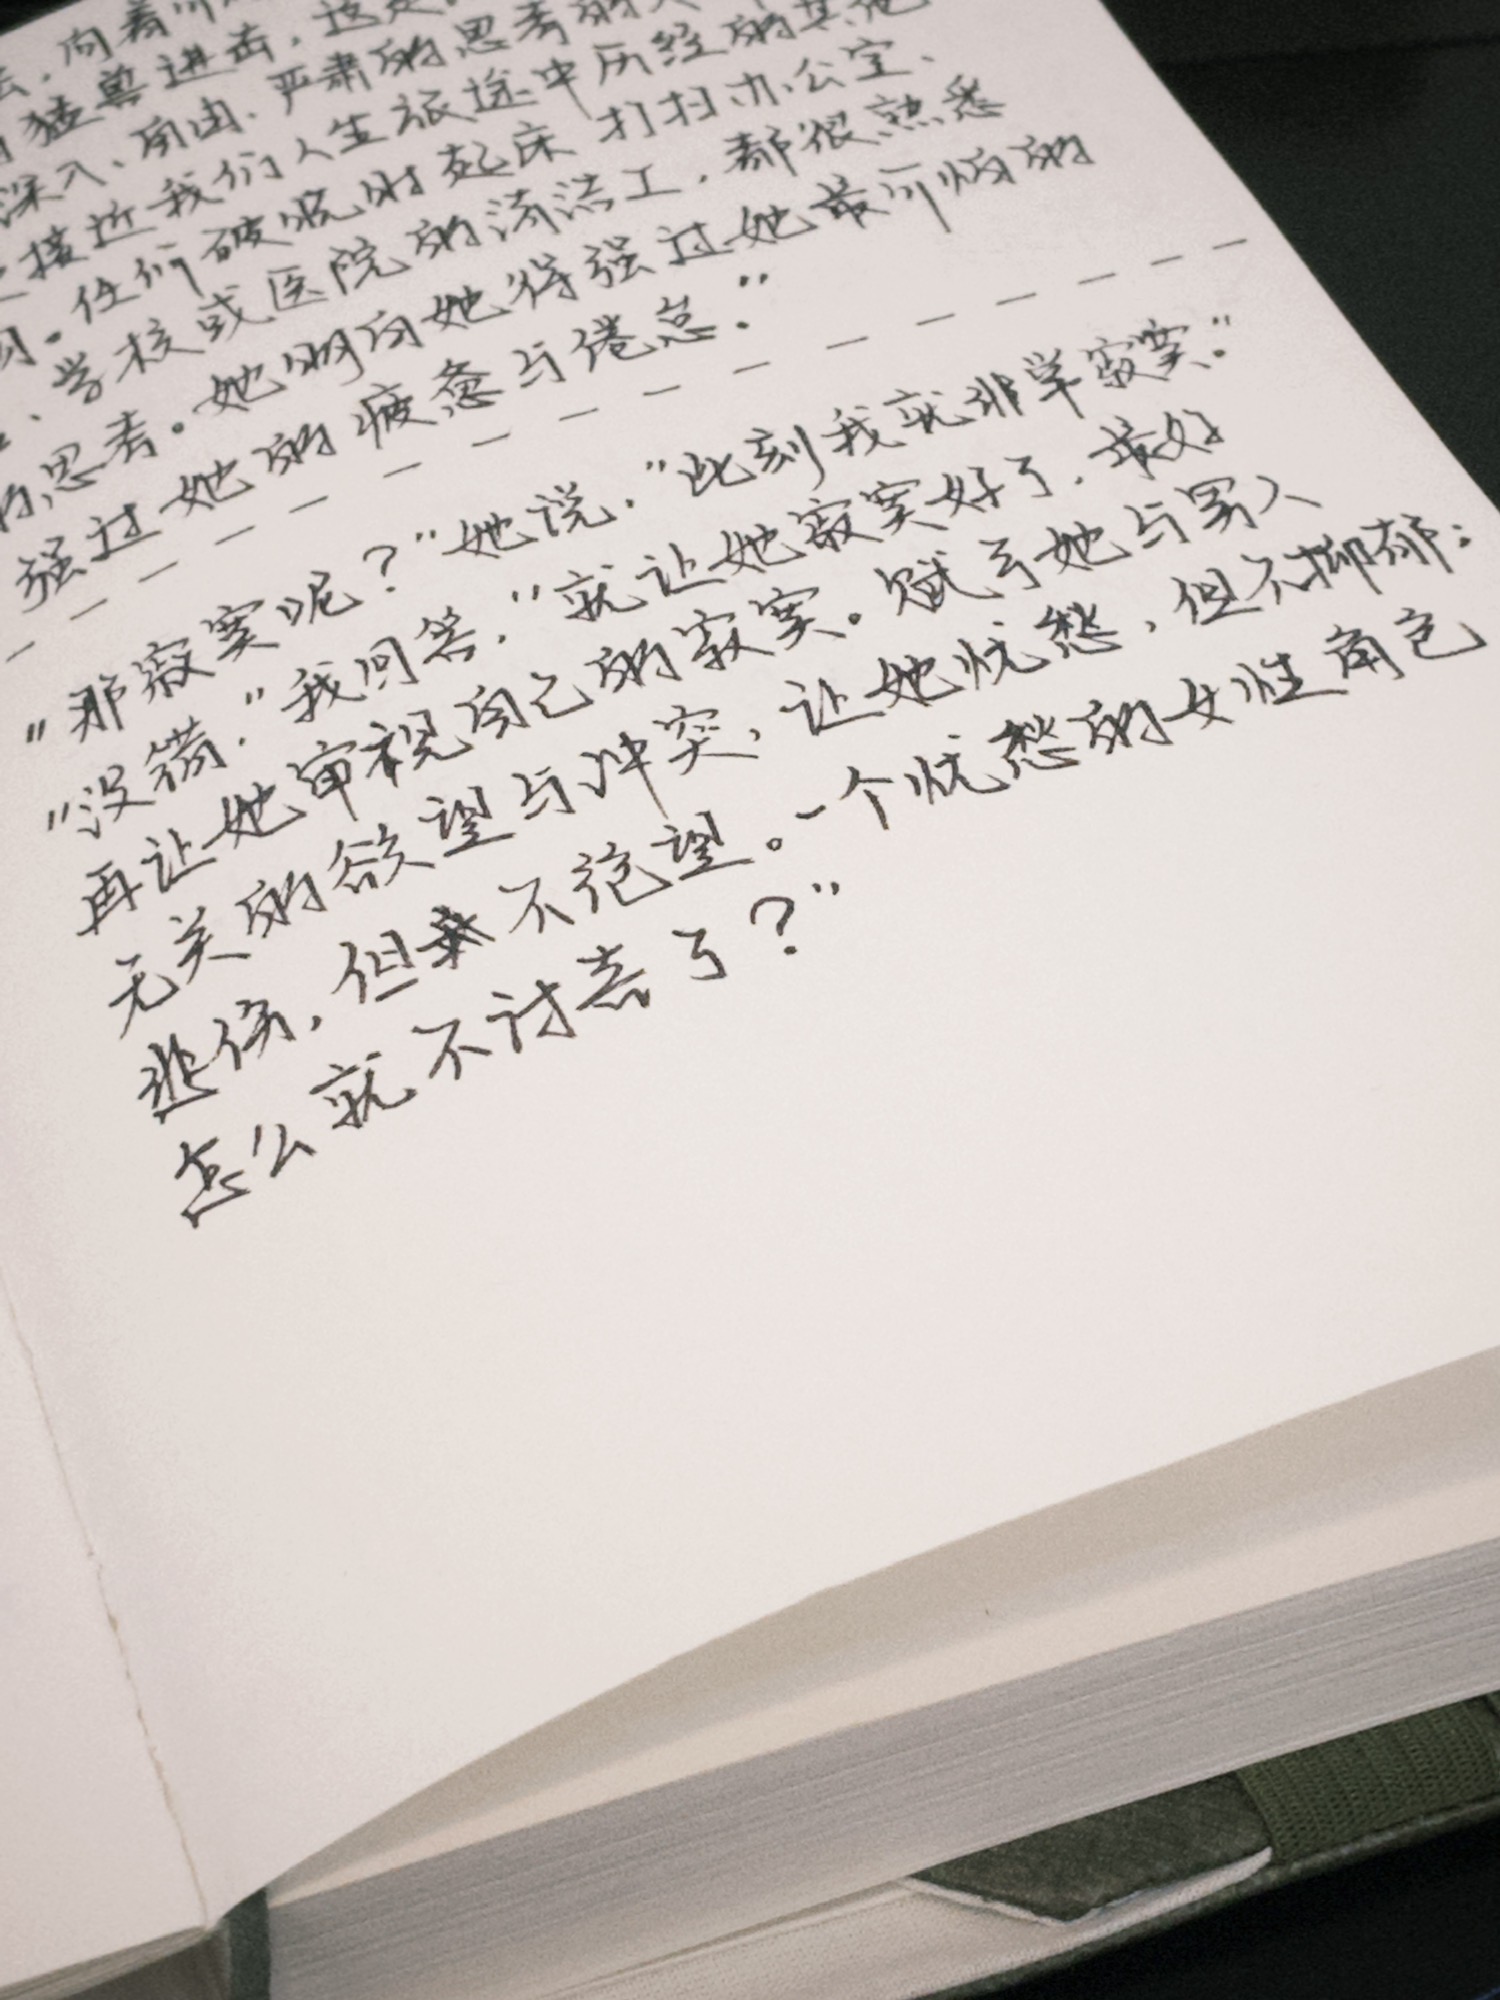 向着
猛兽进击，这是
深入、自由、严肃的思考的
接近我们人生旅途中历经的其他
任何破晓时起床打扫办公室、
学校或医院的清洁工，都很熟悉
的思考。她明白她得强过她最可怕的
强过她的疲惫与倦怠。”
“那寂寞呢？”她说，“此刻我就非常寂寞。”
“没错，”我回答，“就让她寂寞好了，最好
再让她审视自己的寂寞。赋予她与男人
无关的欲望与冲突，让她忧愁，但不抑郁；
悲伤，但不绝望。一个忧愁的女性角色
怎么就不讨喜了？”